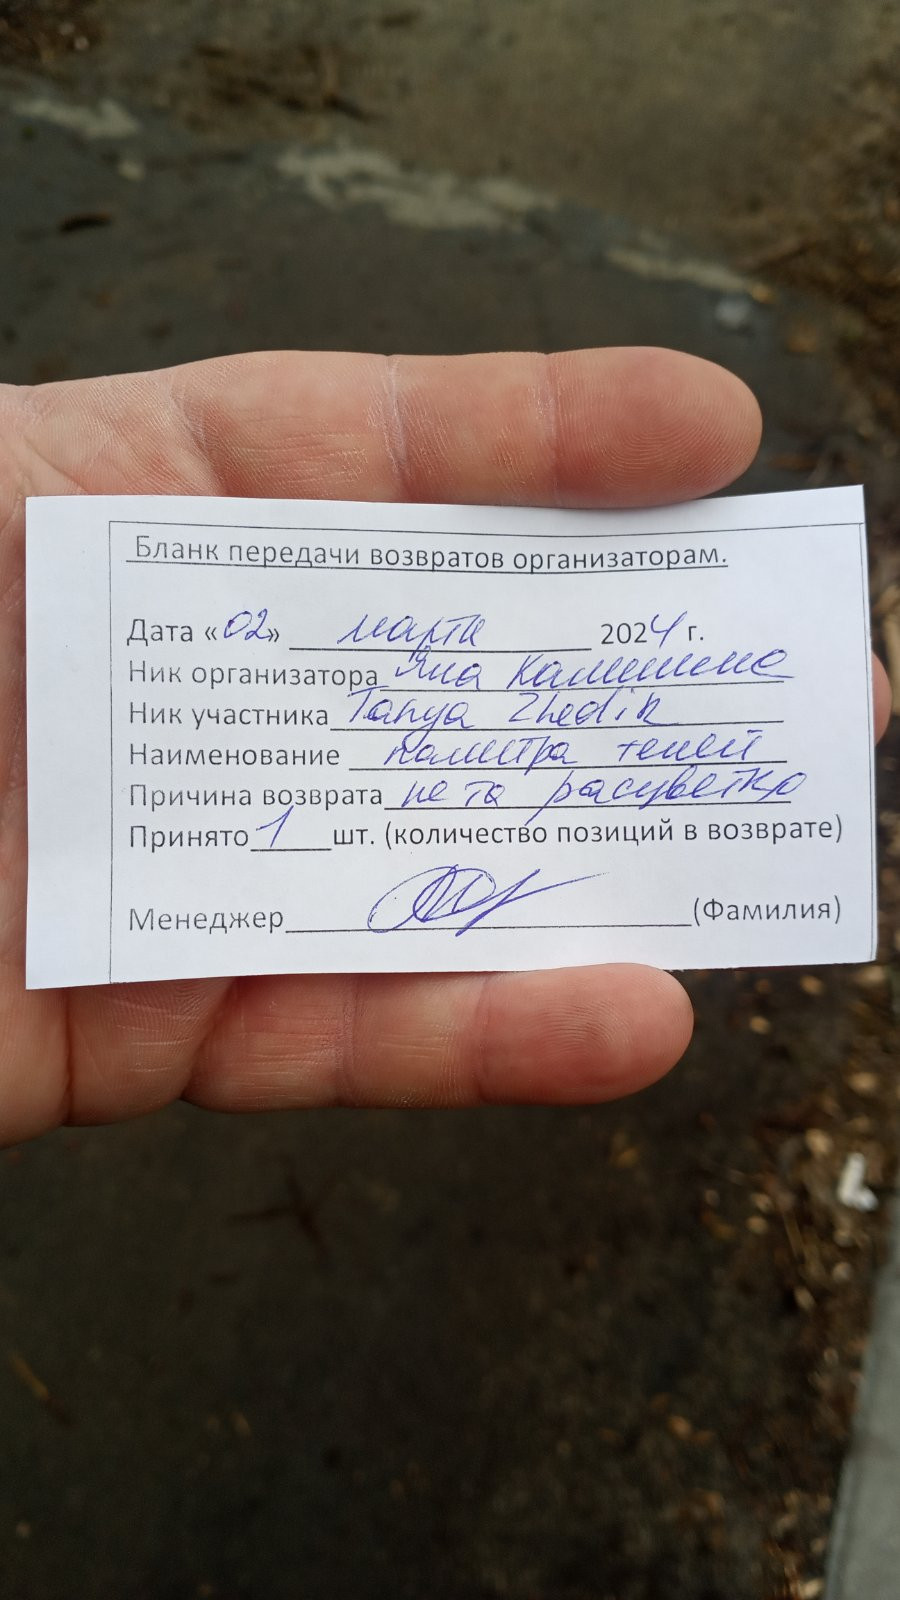 Бланк передачи возвратов организаторам.
Дата «02» марта 2024 г.
Ник организатора Яна Калинина
Ник участника Tanya Zhedik
Наименование палитра теней
Причина возврата не та расцветка
Принято 1 шт. (количество позиций в возврате)
Менеджер (Фамилия)